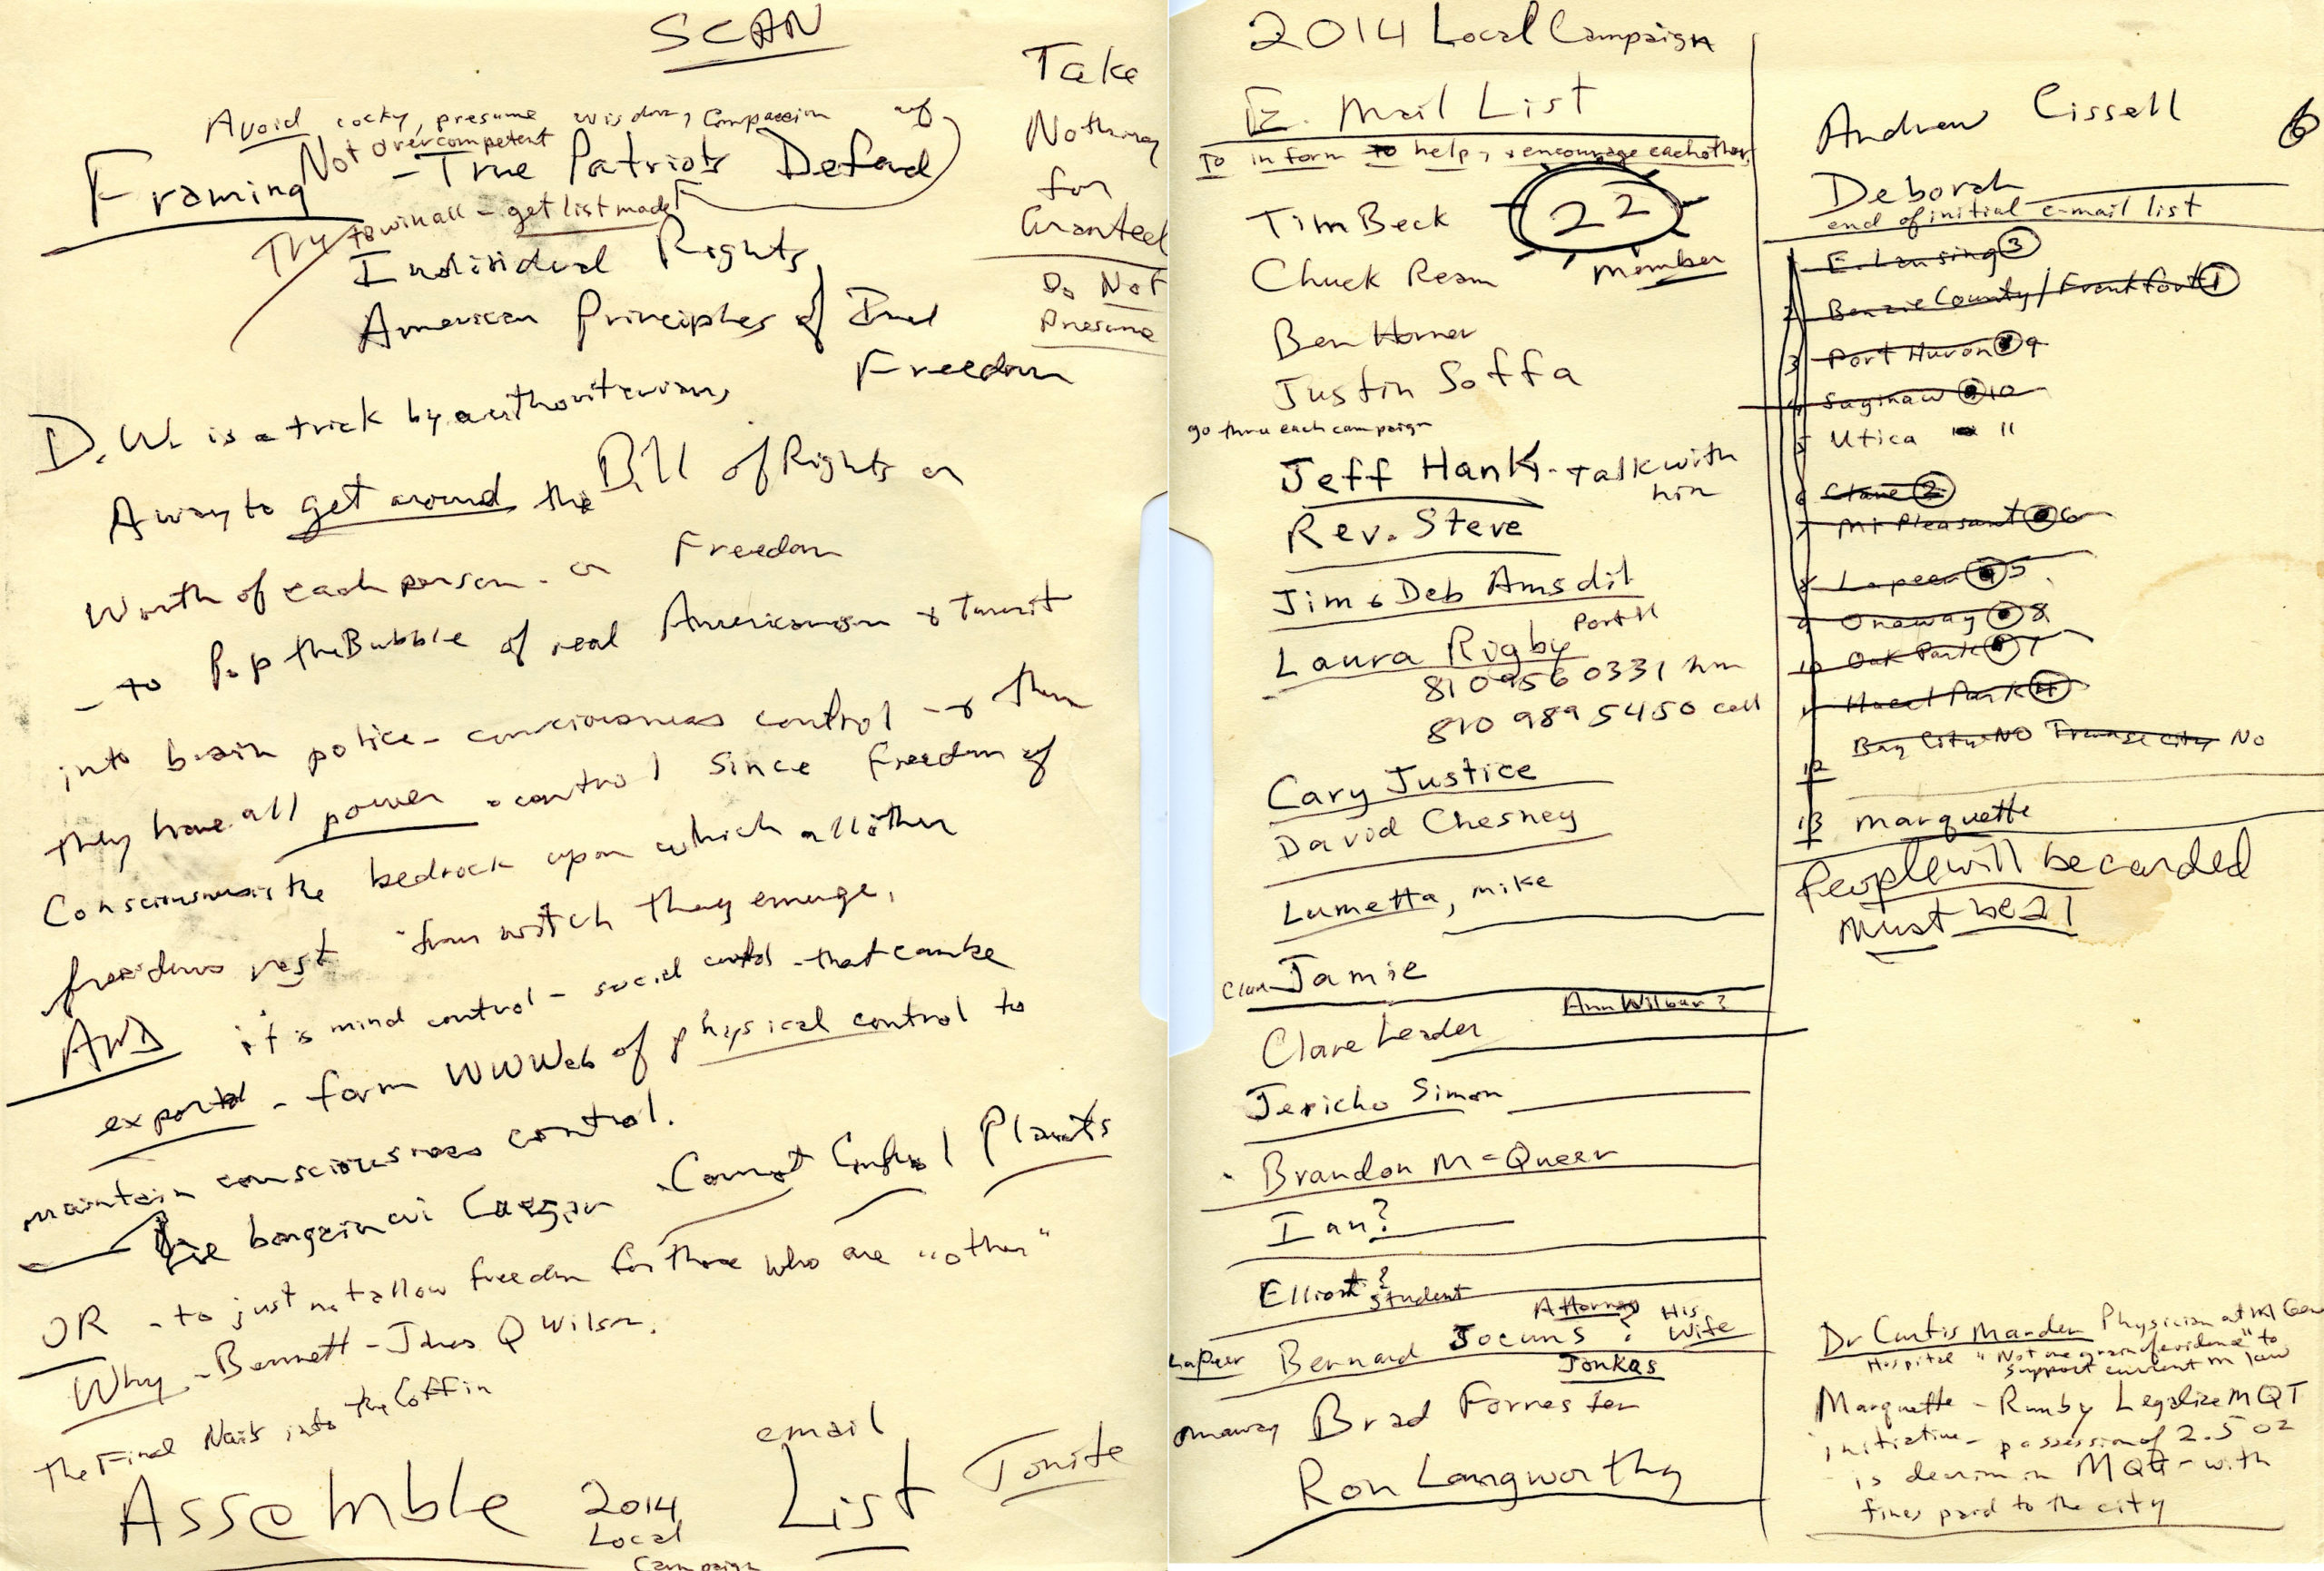 SCAN
Take
Nothing
for
Granted
Do Not
Presume
Avoid cocky, presume wisdom, compassion of
Not overcompetent
Framing - True Patriots Defend
Try to win all - get list made
Individual Rights
American Principles of Ind
Freedom
D.W. is a trick by authoritarians
A way to get around the Bill of Rights or
Worth of each person. or Freedom
- to Pop the Bubble of real Americanism & turn it
into brain police - consciousness control - & then
they have all power & control since freedom of
Consciousness is the bedrock upon which all other
freedoms rest from witch they emerge.
AND it is mind control - social control - that can be
exported - form WWWeb of physical control to
maintain consciousness control.
Cannot Control Plants
OR - to just not allow freedom for those who are "other"
Why - Bennett - James Q Wilson.
The Final Nails into the Coffin
Assemble 2014 Local Campaign email List Tonite
2014 Local Campaign
E. Mail List
To inform to help, & encourage each other
22
member
Tim Beck
Chuck Ream
Ben Horner
Justin Soffa
go thru each campaign
Jeff Hank - Talk with him
Rev. Steve
Jim & Deb Amsdil
Port H
Laura Rigby
810 956 0331 hm
810 989 5450 cell
Cary Justice
David Chesney
Lumetta, Mike
Jamie
Ann Wilbur?
Clare Leader
Jericho Simon
Brandon McQueen
Ian?
Elliott? Student
Attorney
Lapeer Bernard Jocuns? His Wife
Jonkas
Onaway Brad Forrester
Ron Langworthy
Andrew Cissell 6
Deborah
end of initial e-mail list
E. Lansing 3
2 Benzie County / Frankfort 1
3 Port Huron 9
4 Saginaw 10
5 Utica 11
6 Clare 2
7 Mt Pleasant 6
8 Lapeer 5
9 Onaway 8
10 Oak Park 7
11 Hazel Park 4
Bay City NO Traverse City No
12
13 Marquette
People will be carded
Must be 21
Dr Curtis Marder Physician at M Gen
Hospital "Not one grain of evidence" to
support current m law
Marquette - Run by Legalize MQT
initiative - possession of 2.5 oz
is decrim in MQT - with
fines paid to the city